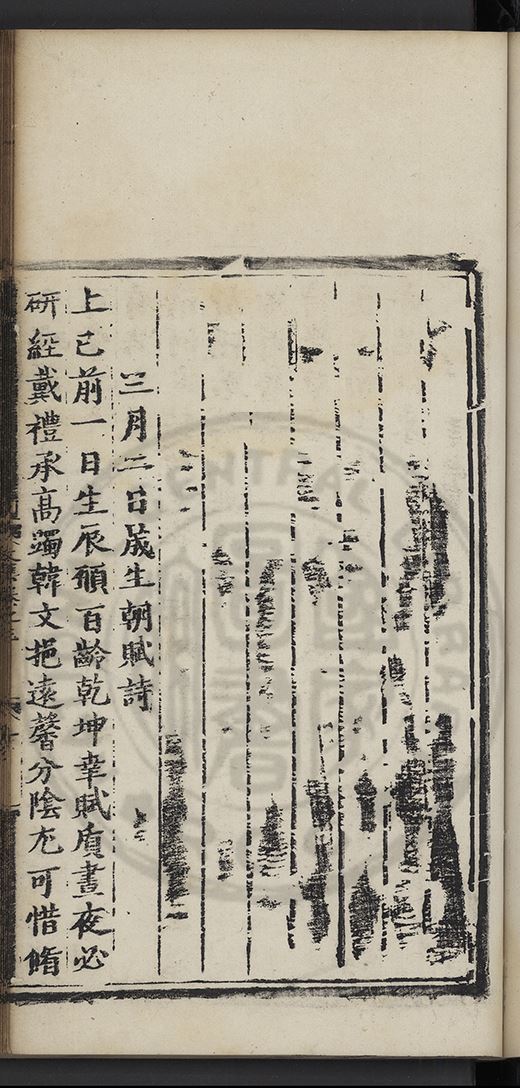 三月二日晟生朝賦詩
上巳前一日生辰願百齡乾坤幸賦貭晝夜必
研經戴禮承高躅韓文挹遠馨分陰尤可惜脩